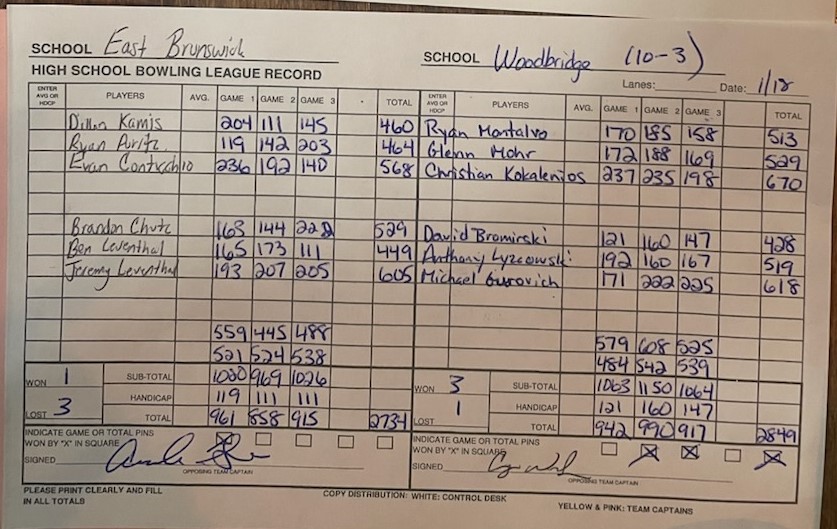 SCHOOL East Brunswick
SCHOOL Woodbridge (10-3)
HIGH SCHOOL BOWLING LEAGUE RECORD
Lanes: Date: 1/18
ENTER AVG OR HDCP PLAYERS AVG. GAME 1 GAME 2 GAME 3 TOTAL
ENTER AVG OR HDCP PLAYERS AVG. GAME 1 GAME 2 GAME 3 TOTAL
Dillon Kamis 204 111 145 460
Ryan Montalvo 170 185 158 513
Ryan Puritz 119 142 203 464
Glenn Mohr 172 188 169 529
Evan Contrchio 236 192 140 568
Christian Kokalenios 237 235 198 670
Brandon Chutz 163 144 222 529
David Bromirski 121 160 147 428
Ben Leventhal 165 173 111 449
Anthony 192 160 167 519
Jeremy Leventhal 193 207 205 605
Michael Gurovich 171 222 225 618
559 445 488
579 608 525
521 524 538
484 542 539
WON 1 SUB-TOTAL 1080 969 1026
WON 3 SUB-TOTAL 1063 1150 1064
LOST 3 HANDICAP 119 111 111
LOST 1 HANDICAP 121 160 147
TOTAL 961 858 915 2734
TOTAL 942 990 917 2849
INDICATE GAME OR TOTAL PINS
WON BY "X" IN SQUARE X
INDICATE GAME OR TOTAL PINS
WON BY "X" IN SQUARE X X X
SIGNED
OPPOSING TEAM CAPTAIN
SIGNED
OPPOSING TEAM CAPTAIN
PLEASE PRINT CLEARLY AND FILL
IN ALL TOTALS
COPY DISTRIBUTION: WHITE: CONTROL DESK
YELLOW & PINK: TEAM CAPTAINS